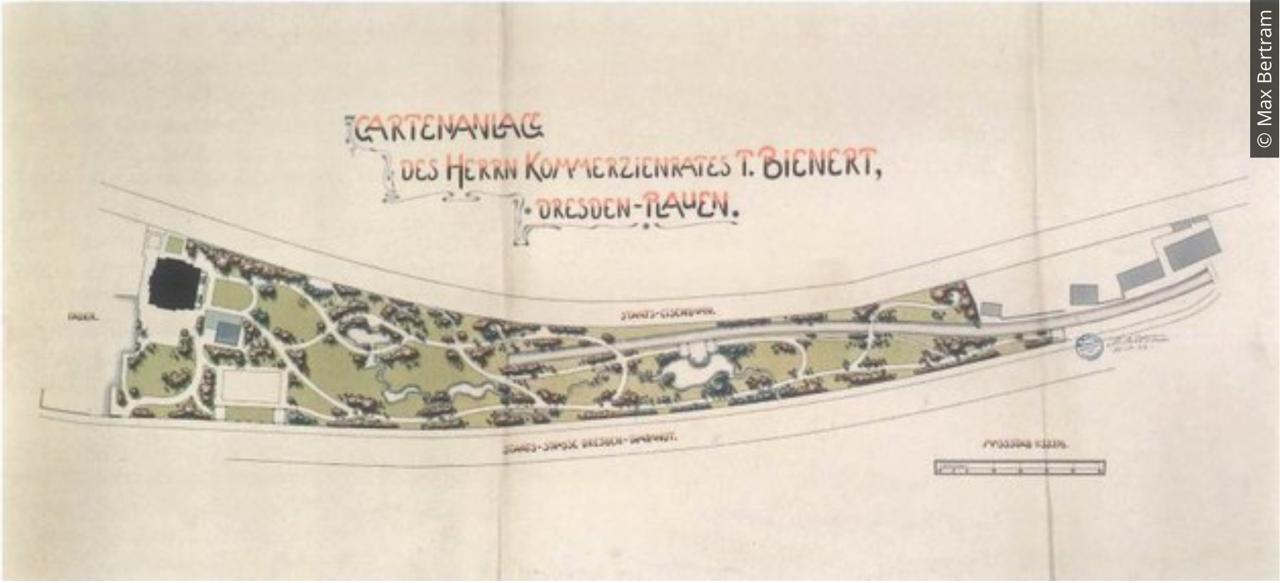 GARTENANLAGE
DES HERRN KOMMERZIENRATES T. BIENERT,
DRESDEN-PLAUEN.
STAATS-EISENBAHN.
STAATS-STRASSE DRESDEN-THARANDT.
© Max Bertram